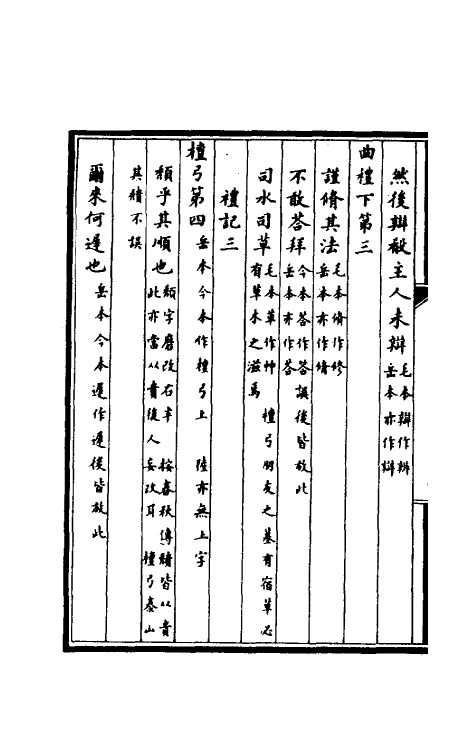 然後辯殽主人未辯毛本辯作辨岳本亦作辯
曲禮下第三
謹脩其法毛本脩作修岳本亦作脩
不敢荅拜今本荅作答誤後皆放此岳本亦作荅
司水司草毛本草作艸檀弓朋友之墓有宿草必有草木之滋焉
禮記三
檀弓第四岳本今本作檀弓上 陸亦無上字
頹乎其順也頹字磨改右半 按春秋傳隤皆从貴此亦當从貴後人妄改耳 檀弓泰山
其穨不誤
爾來何遲也岳本今本遲作遲後皆放此